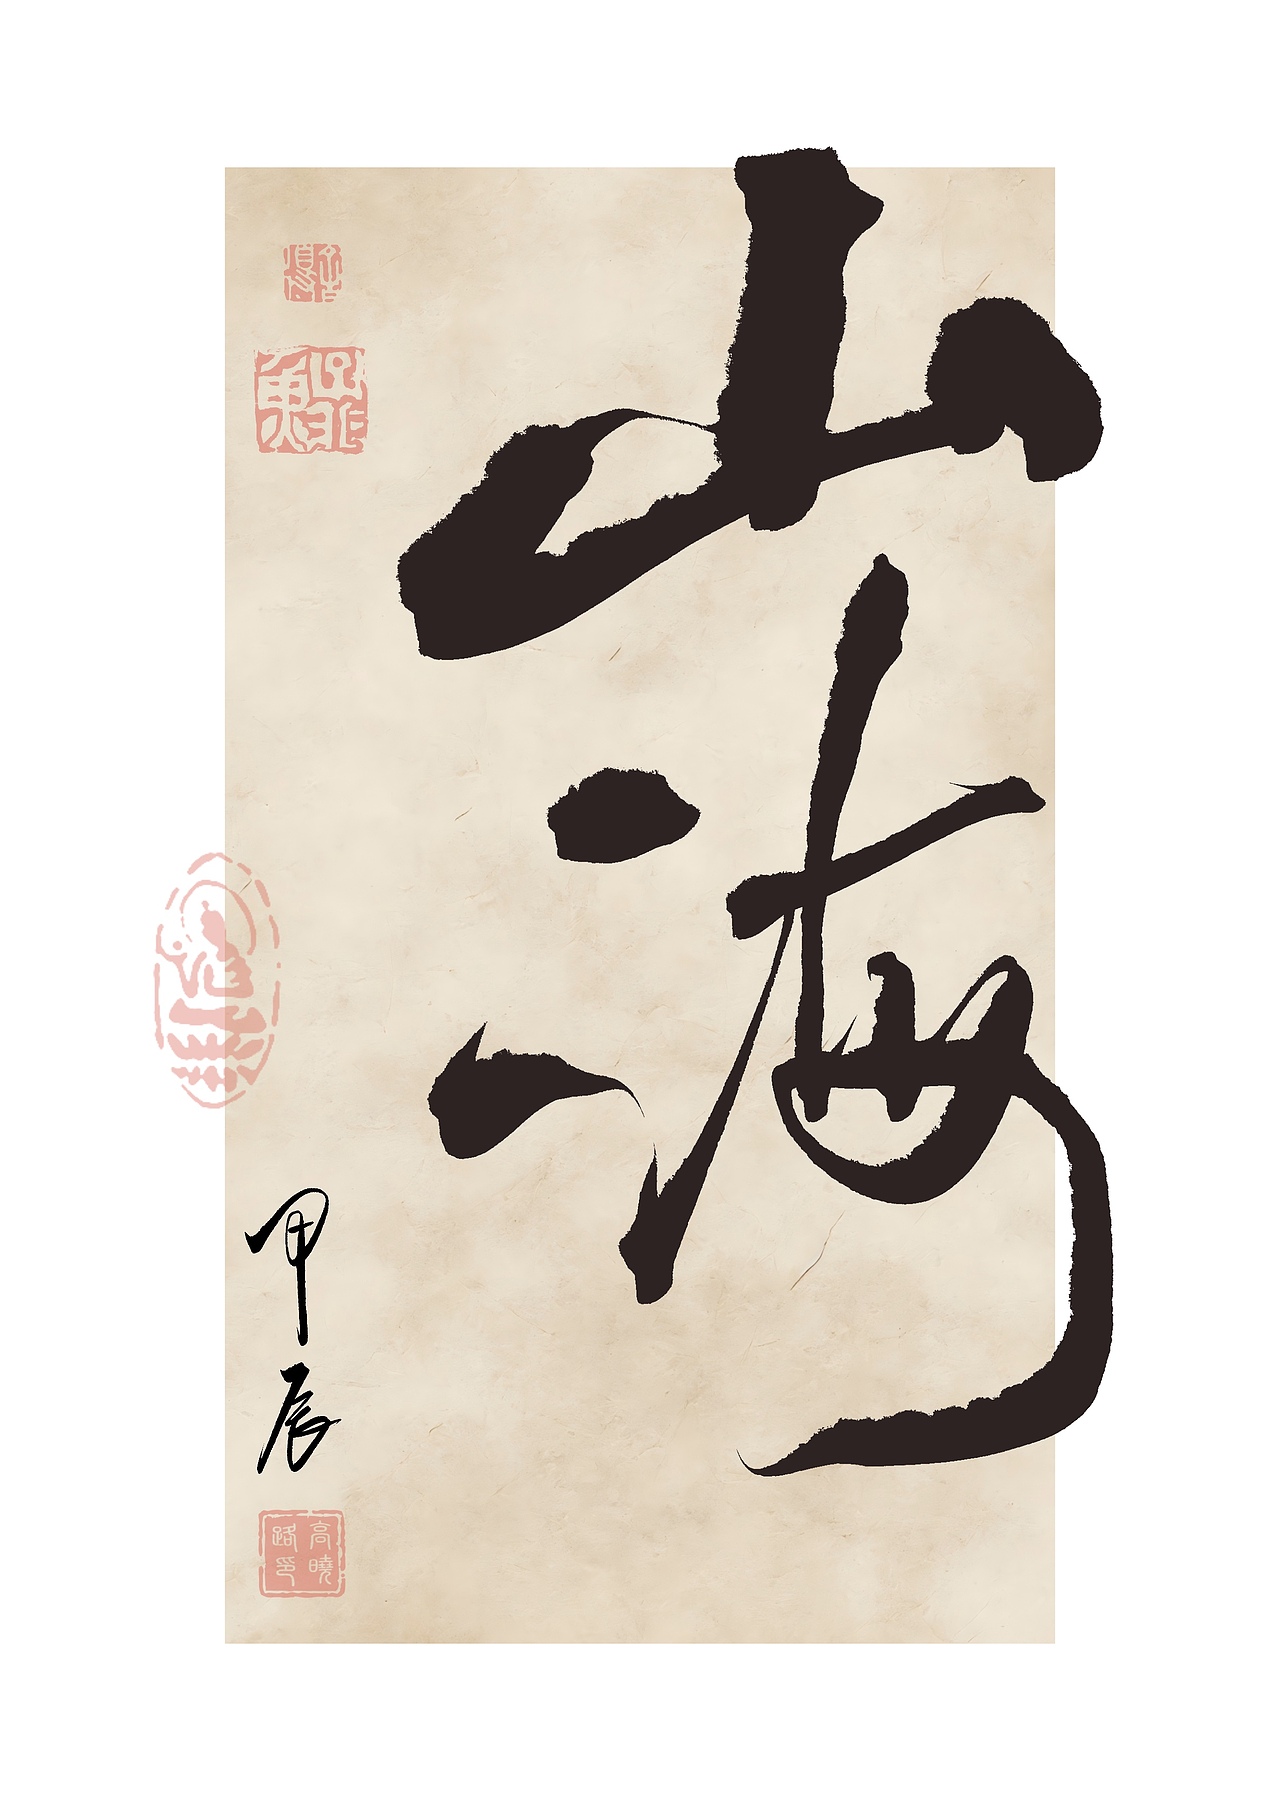 山海
甲辰
高曉路印